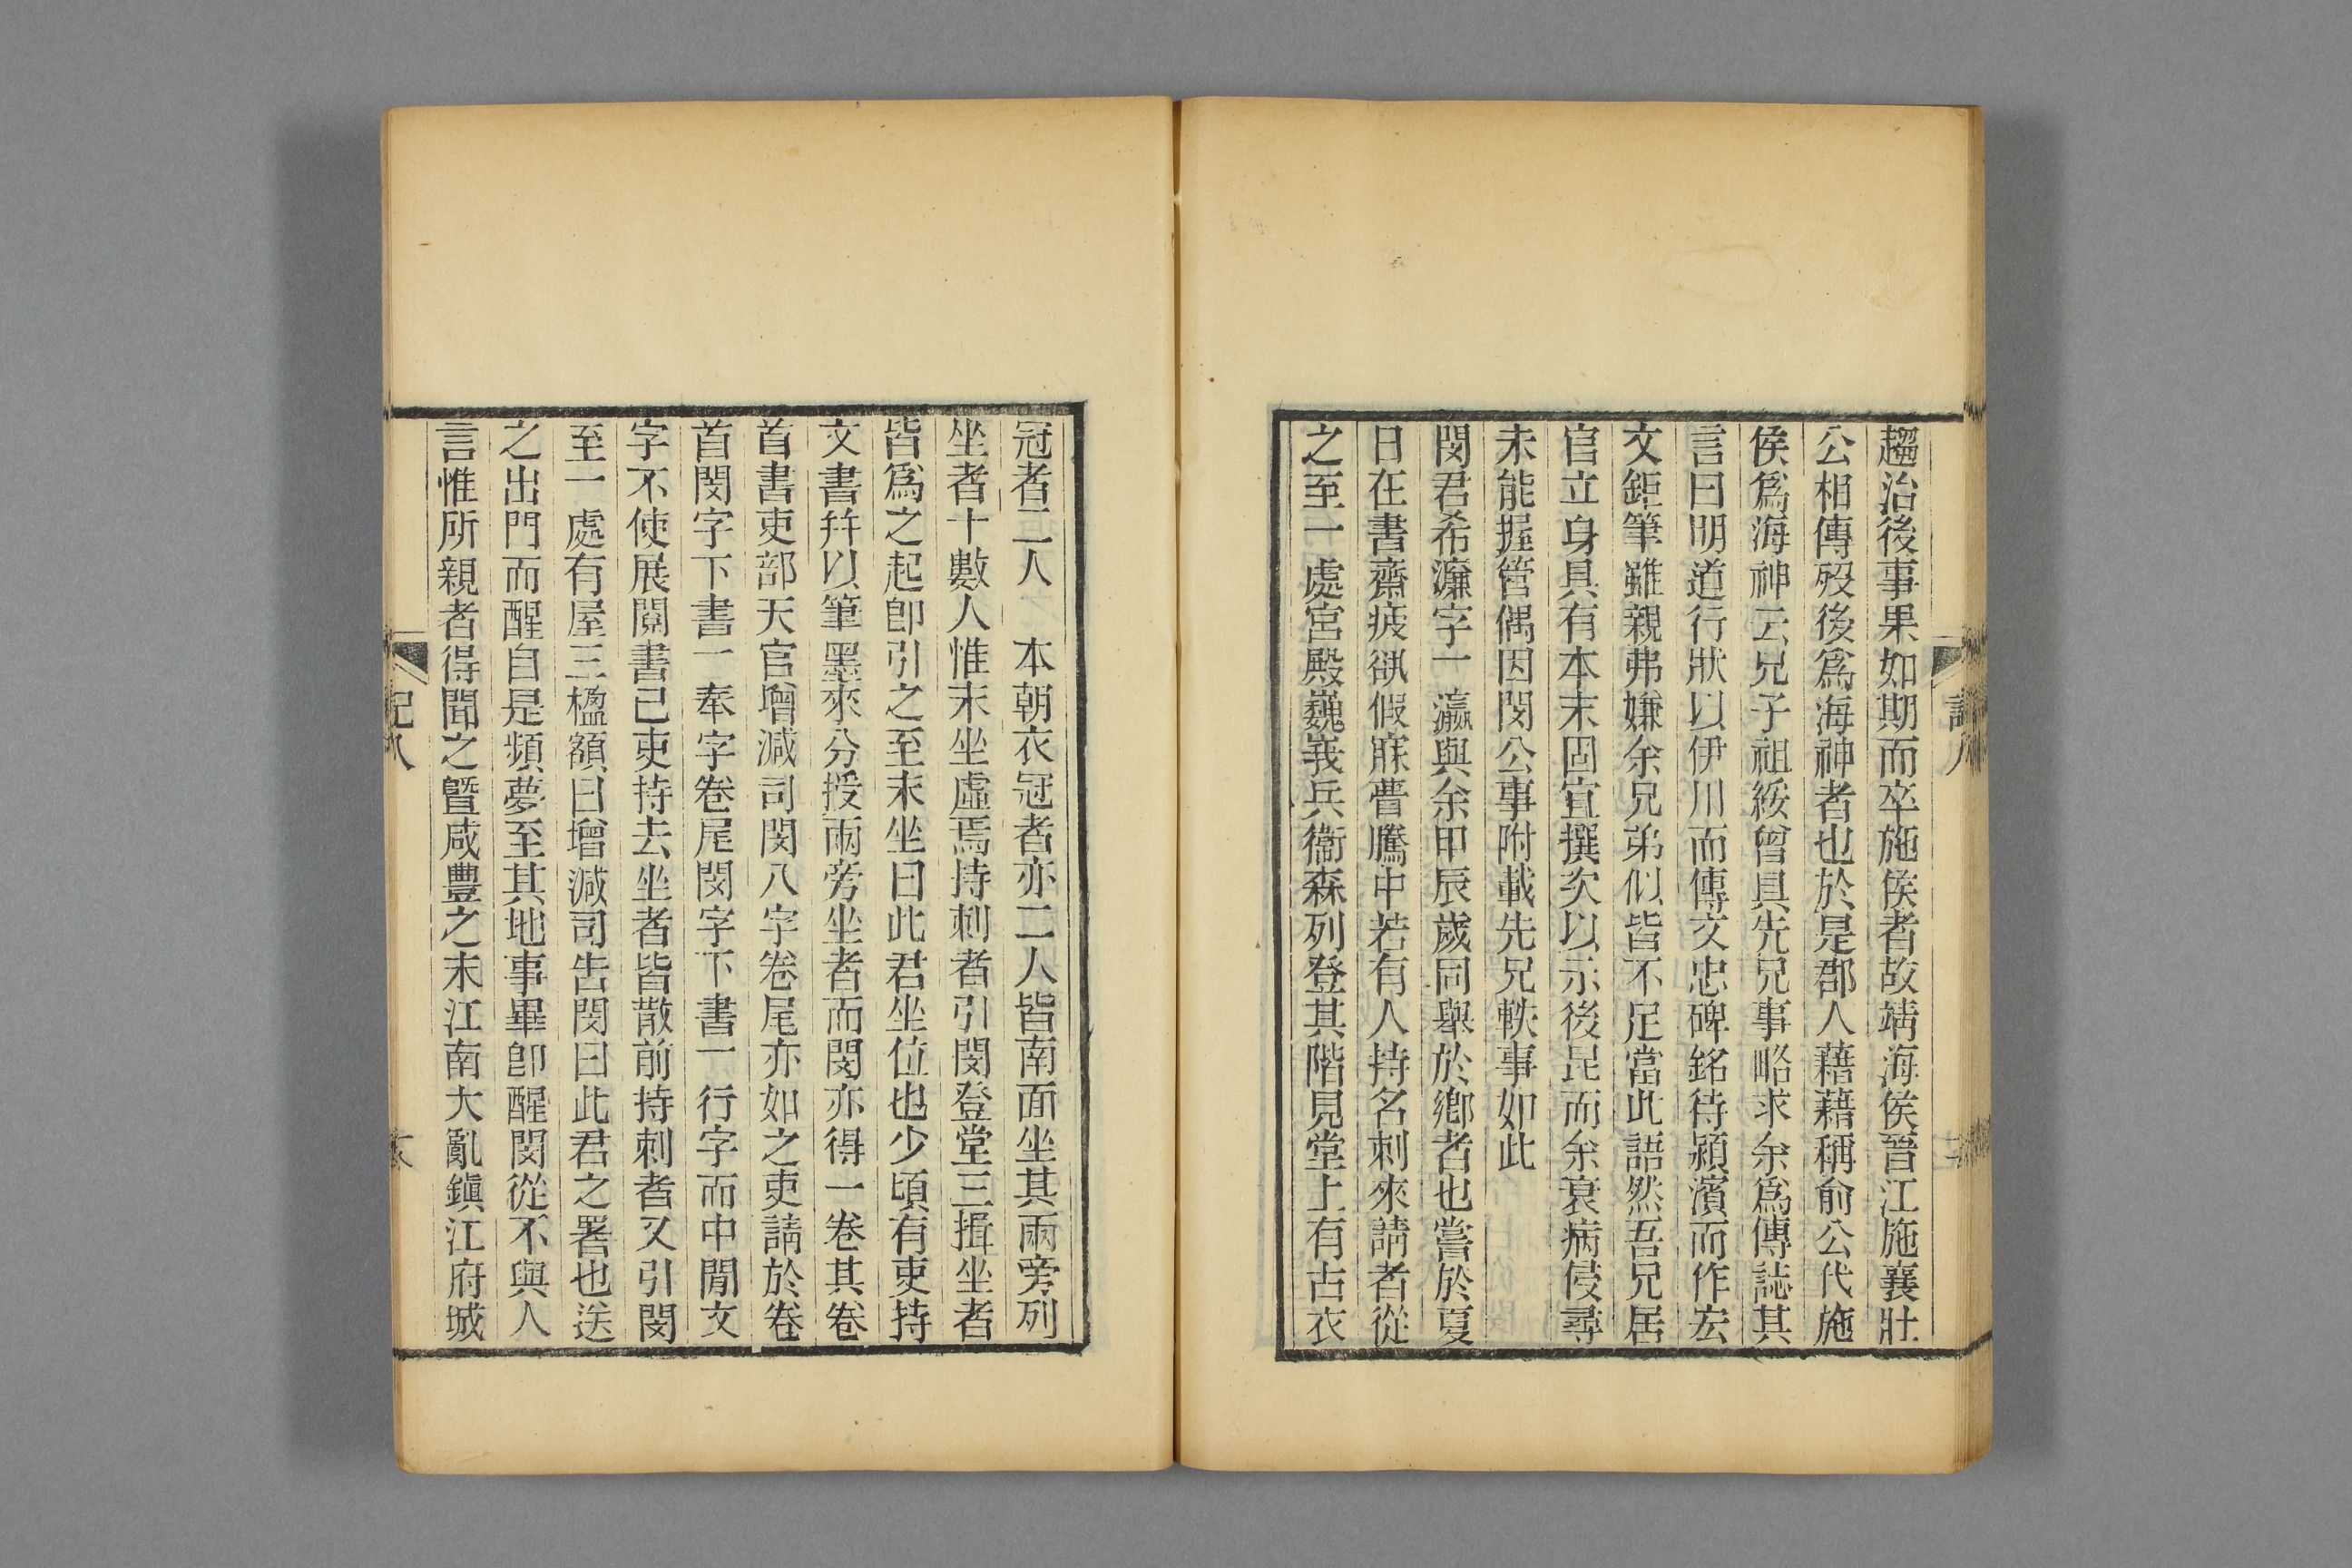 趨治後事果如期而卒施侯者故靖海侯晉江施襄壯
公相傳歿後爲海神者也於是郡人藉藉稱俞公代施
侯爲海神云兄子祖綏曾具先兄事略求余爲傳誌其
言曰明道行狀以伊川而傳文忠碑銘待潁濱而作宏
文鉅筆雖親弗嫌余兄弟似皆不足當此語然吾兄居
官立身具有本末固宜撰次以示後昆而余衰病侵尋
未能握管偶因閔公事附載先兄軼事如此
閔君希濂字一瀛與余甲辰歲同舉於鄉者也嘗於夏
日在書齋疲欲假寐瞢騰中若有人持名刺來請者從
之至一處宮殿巍峩兵衞森列登其階見堂上有古衣
冠者二人　本朝衣冠者亦二人皆南面坐其兩旁列
坐者十數人惟末坐虛焉持刺者引閔登堂三揖坐者
皆爲之起卽引之至末坐曰此君坐位也少頃有吏持
文書幷以筆墨來分授兩旁坐者而閔亦得一卷其卷
首書吏部天官增減司閔八字卷尾亦如之吏請於卷
首閔字下書一奉字卷尾閔字下書一行字而中閒文
字不使展閱書已吏持去坐者皆散前持刺者又引閔
至一處有屋三楹額曰增減司吿閔曰此君之署也送
之出門而醒自是頻夢至其地事畢卽醒閔從不與人
言惟所親者得聞之曁咸豐之末江南大亂鎭江府城
記八